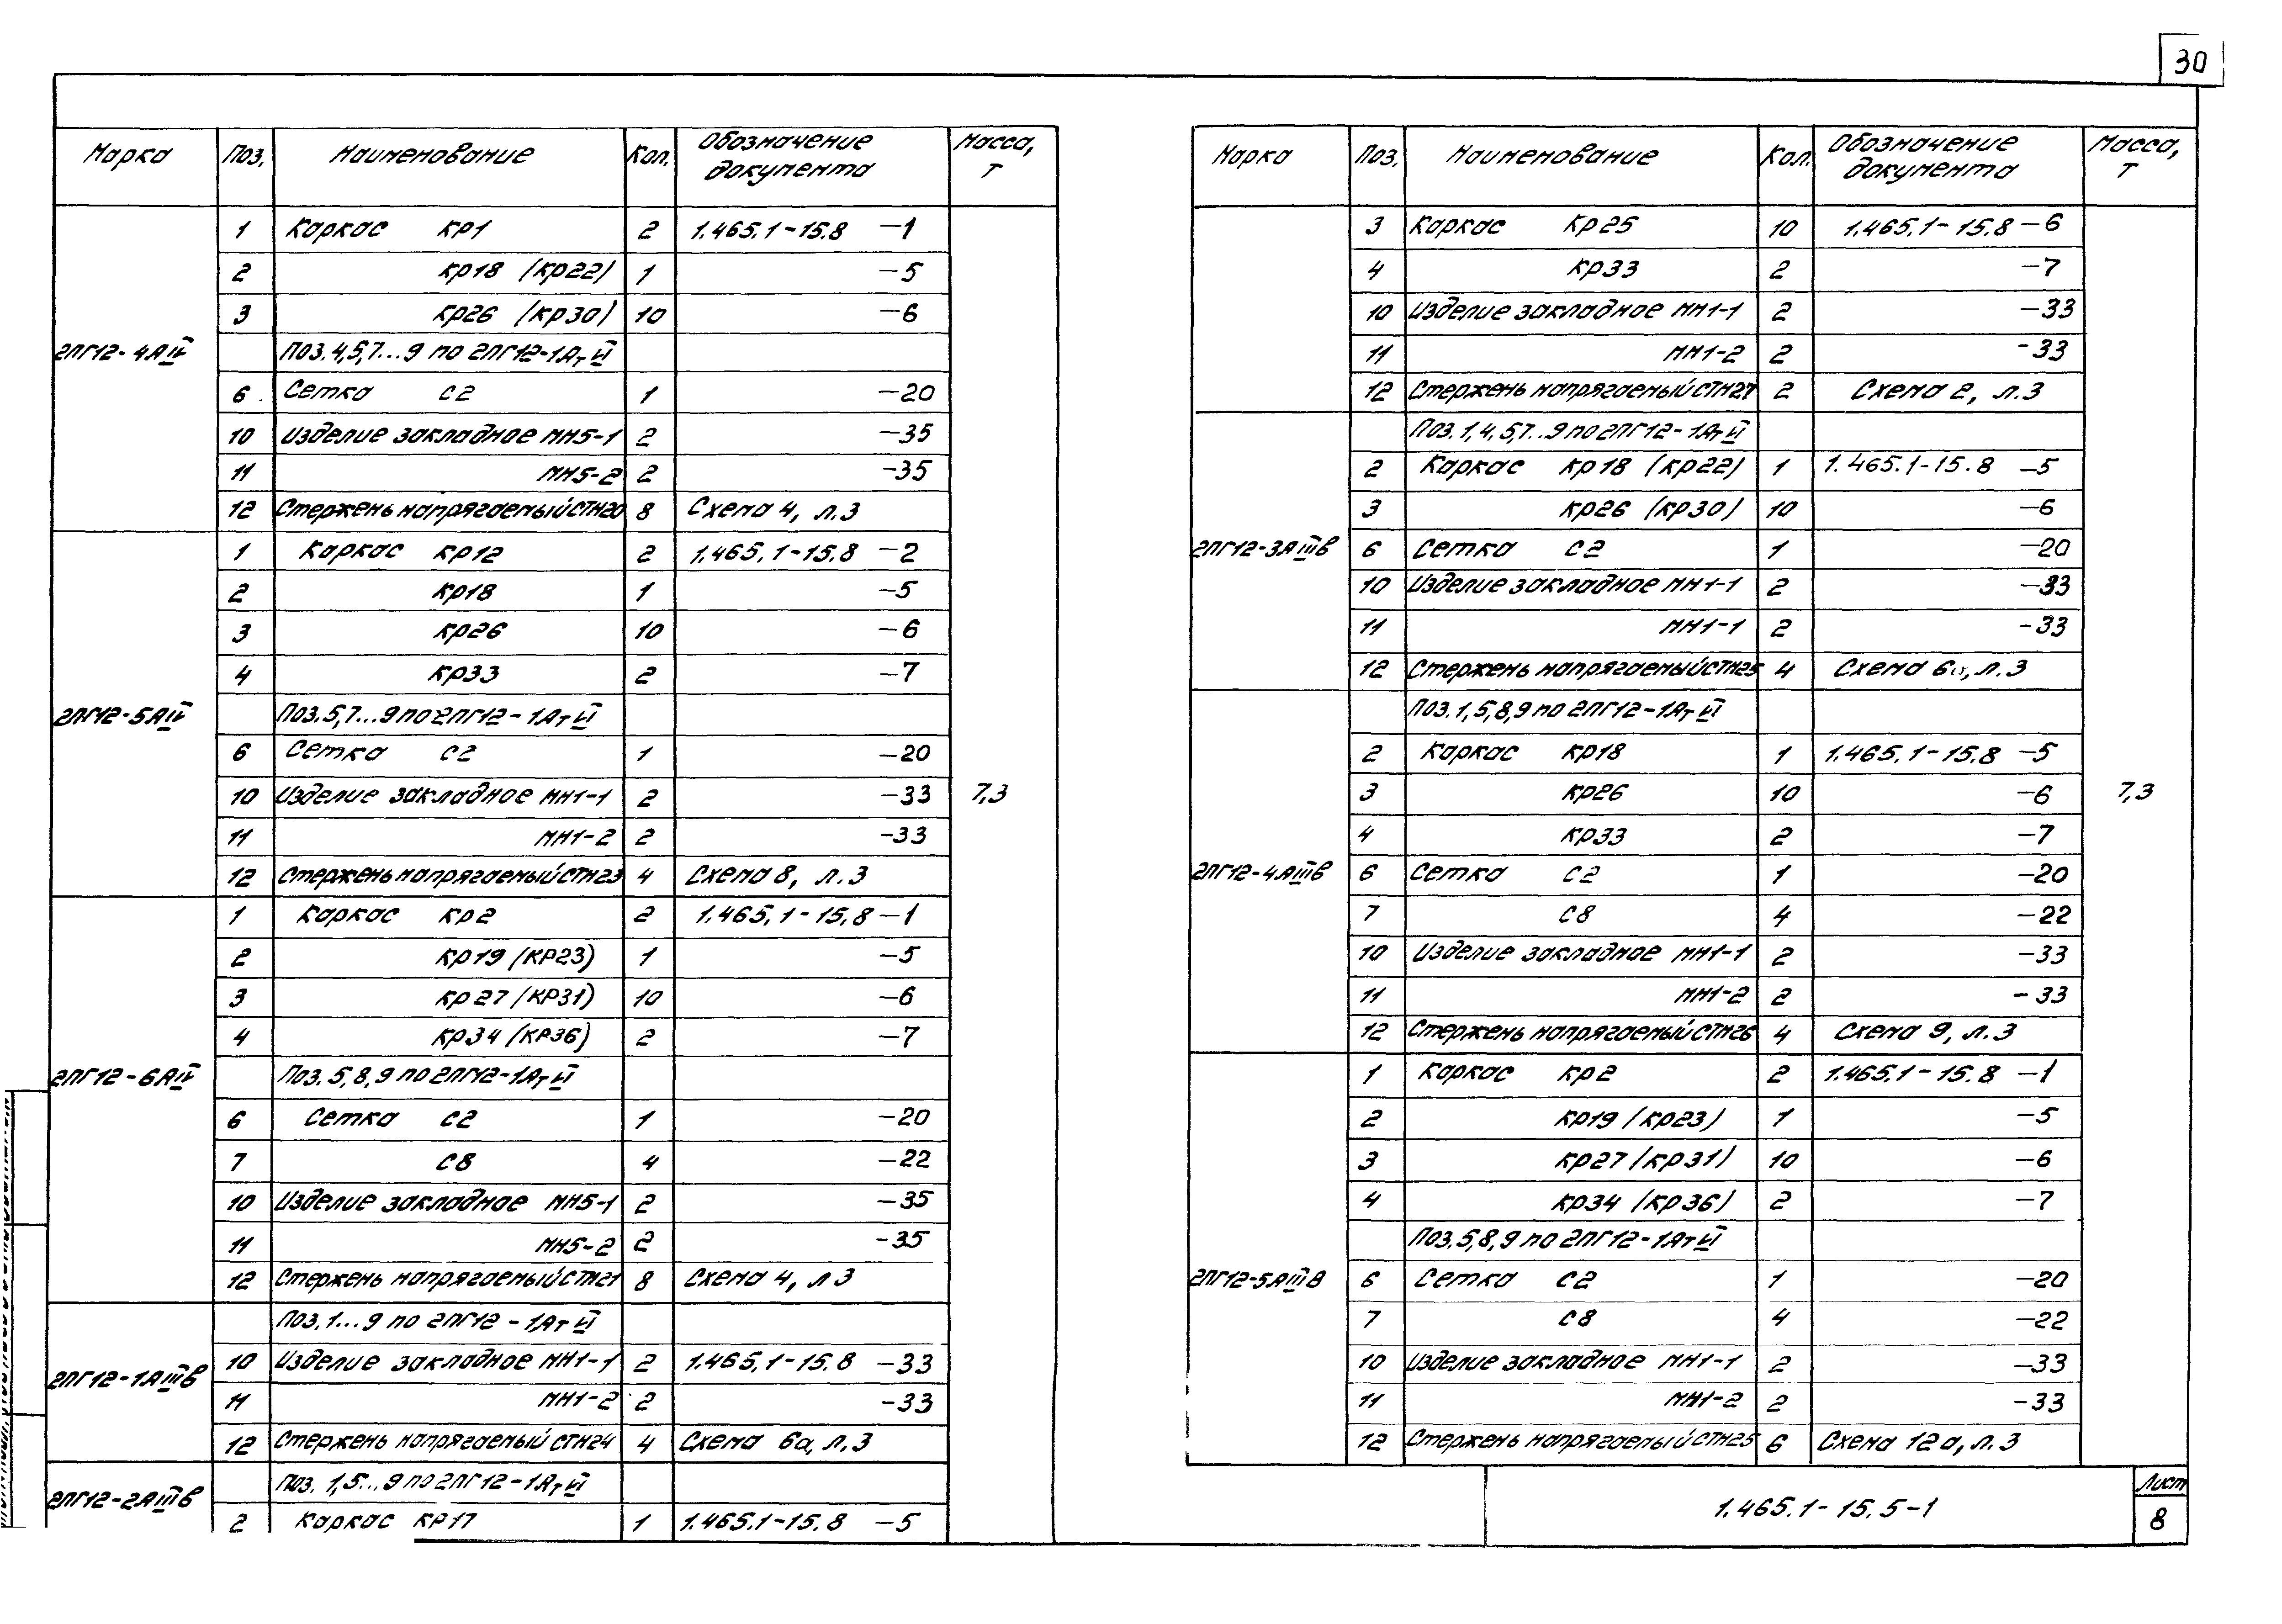 30
Марка Поз. Наименование Кол. Обозначение документа Масса, т
1 Каркас КР1 2 1.465.1-15.8 -1
2 КР18 (КР22) 1 -5
3 КР26 (КР30) 10 -6
2ПГ12-4АIV Поз. 4,5,7...9 по 2ПГ12-1АтVI
6 Сетка С2 1 -20
10 Изделие закладное МН5-1 2 -35
11 МН5-2 2 -35
12 Стержень напрягаемый СТН20 8 Схема 4, л.3
1 Каркас КР12 2 1.465.1-15.8 -2
2 КР18 1 -5
3 КР26 10 -6
4 КР33 2 -7
2ПГ12-5АIV Поз. 5,7...9 по 2ПГ12-1АтVI
6 Сетка С2 1 -20
10 Изделие закладное МН1-1 2 -33 7,3
11 МН1-2 2 -33
12 Стержень напрягаемый СТН23 4 Схема 8, л.3
1 Каркас КР2 2 1.465.1-15.8 -1
2 КР19 (КР23) 1 -5
3 КР27 (КР31) 10 -6
4 КР34 (КР36) 2 -7
2ПГ12-6АIV Поз. 5,8,9 по 2ПГ12-1АтVI
6 Сетка С2 1 -20
7 С8 4 -22
10 Изделие закладное МН5-1 2 -35
11 МН5-2 2 -35
12 Стержень напрягаемый СТН21 8 Схема 4, л 3
Поз. 1...9 по 2ПГ12-1АтVI
2ПГ12-1АIIIв 10 Изделие закладное МН1-1 2 1.465.1-15.8 -33
11 МН1-2 2 -33
12 Стержень напрягаемый СТН24 4 Схема 6а, л.3
2ПГ12-2АIIIв Поз. 1,5...9 по 2ПГ12-1АтVI
2 Каркас КР17 1 1.465.1-15.8 -5
Марка Поз. Наименование Кол. Обозначение документа Масса, т
3 Каркас КР25 10 1.465.1-15.8 -6
4 КР33 2 -7
10 Изделие закладное МН1-1 2 -33
11 МН1-2 2 -33
12 Стержень напрягаемый СТН27 2 Схема 2, л.3
Поз. 1,4,5,7...9 по 2ПГ12-1АтVI
2 Каркас КР18 (КР22) 1 1.465.1-15.8 -5
3 КР26 (КР30) 10 -6
2ПГ12-3АIIIв 6 Сетка С2 1 -20
10 Изделие закладное МН1-1 2 -33
11 МН1-1 2 -33
12 Стержень напрягаемый СТН25 4 Схема 6а, л.3
Поз. 1,5,8,9 по 2ПГ12-1АтVI
2 Каркас КР18 1 1.465.1-15.8 -5
3 КР26 10 -6 7,3
4 КР33 2 -7
2ПГ12-4АIIIв 6 Сетка С2 1 -20
7 С8 4 -22
10 Изделие закладное МН1-1 2 -33
11 МН1-2 2 -33
12 Стержень напрягаемый СТН26 4 Схема 9, л.3
1 Каркас КР2 2 1.465.1-15.8 -1
2 КР19 (КР23) 1 -5
3 КР27 (КР31) 10 -6
4 КР34 (КР36) 2 -7
Поз. 5,8,9 по 2ПГ12-1АтVI
2ПГ12-5АIIIв 6 Сетка С2 1 -20
7 С8 4 -22
10 Изделие закладное МН1-1 2 -33
11 МН1-2 2 -33
12 Стержень напрягаемый СТН25 6 Схема 12а, л.3
1.465.1-15.5-1
Лист
8